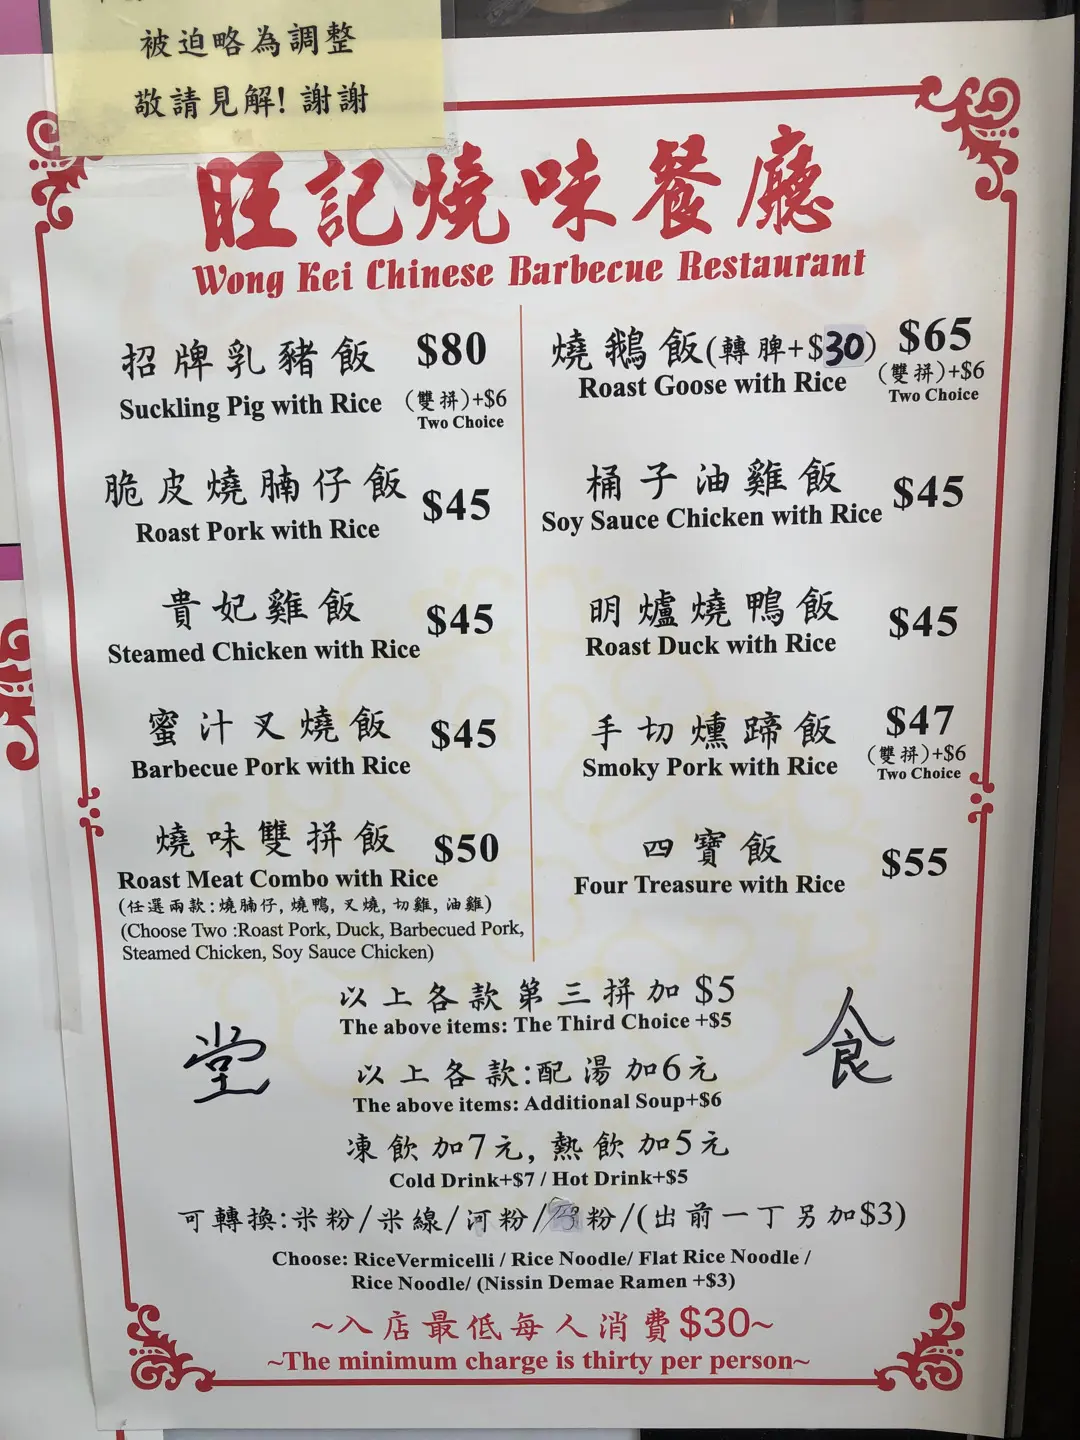 被迫略為調整
敬請見解! 謝謝
旺記燒味餐廳
Wong Kei Chinese Barbecue Restaurant
招牌乳豬飯 $80
Suckling Pig with Rice (雙拼)+$6
Two Choice
脆皮燒腩仔飯 $45
Roast Pork with Rice
貴妃雞飯 $45
Steamed Chicken with Rice
蜜汁叉燒飯 $45
Barbecue Pork with Rice
燒味雙拼飯 $50
Roast Meat Combo with Rice
(任選兩款:燒腩仔, 燒鴨, 叉燒, 切雞, 油雞)
(Choose Two :Roast Pork, Duck, Barbecued Pork,
Steamed Chicken, Soy Sauce Chicken)
燒鵝飯(轉脾+$30) $65
Roast Goose with Rice (雙拼)+$6
Two Choice
桶子油雞飯 $45
Soy Sauce Chicken with Rice
明爐燒鴨飯 $45
Roast Duck with Rice
手切燻蹄飯 $47
Smoky Pork with Rice (雙拼)+$6
Two Choice
四寶飯 $55
Four Treasure with Rice
以上各款第三拼加$5
The above items: The Third Choice +$5
堂食
以上各款:配湯加6元
The above items: Additional Soup+$6
凍飲加7元, 熱飲加5元
Cold Drink+$7 / Hot Drink+$5
可轉換:米粉/米線/河粉/粉/(出前一丁另加$3)
Choose: RiceVermicelli / Rice Noodle/ Flat Rice Noodle /
Rice Noodle/ (Nissin Demae Ramen +$3)
~入店最低每人消費$30~
~The minimum charge is thirty per person~